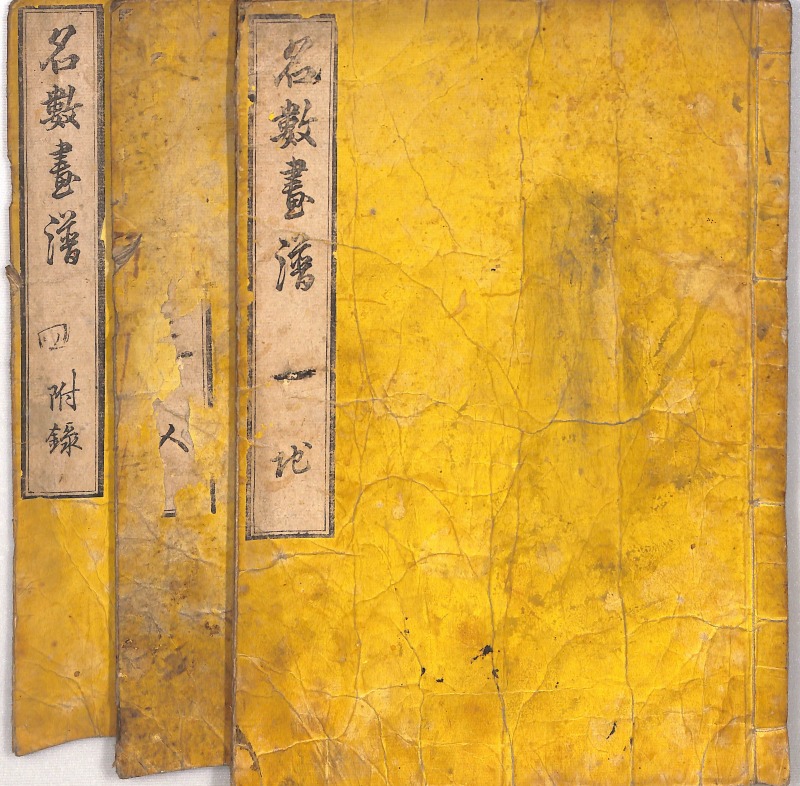 名數畫譜 一 地
人
名數畫譜 四 附錄